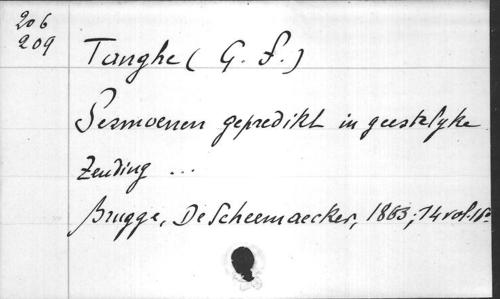 206
209
Tanghe ( G. F. )
Sermoenen gepredikt in geestelyke
Zending ...
Brugge, De Scheemaecker, 1883; 14 vol.